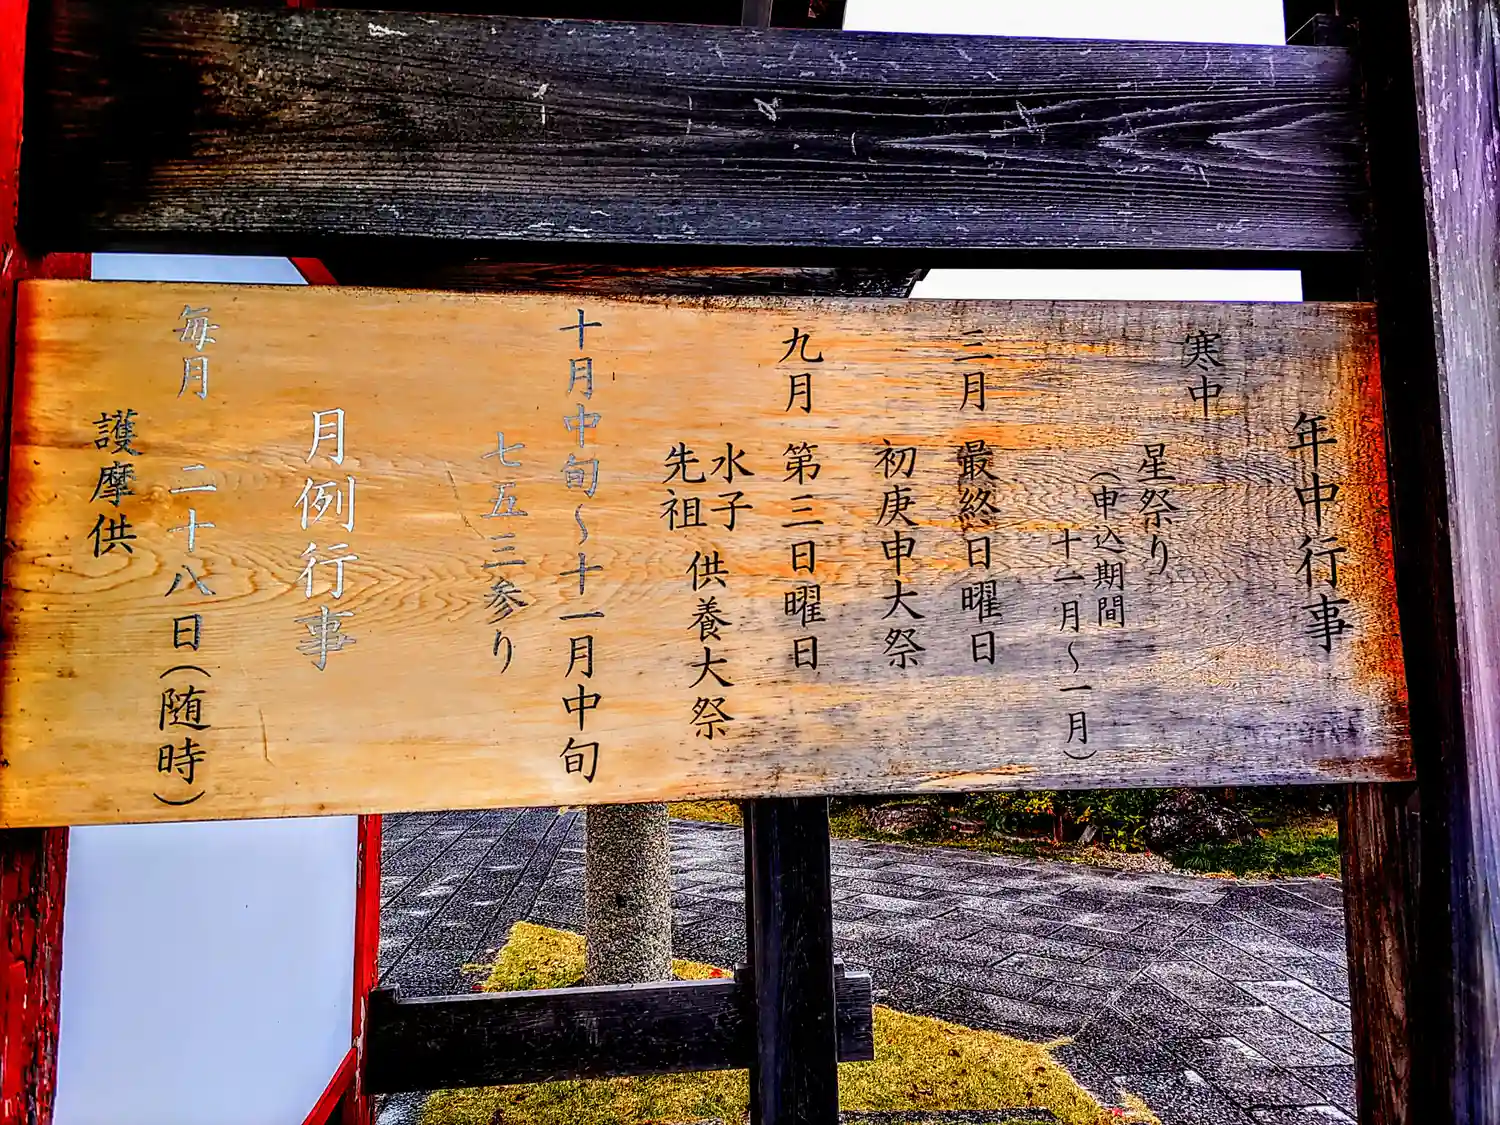 年中行事
寒中
星祭り
(申込期間
十一月〜一月)
三月 最終日曜日
初庚申大祭
九月 第三日曜日
水子
先祖
供養大祭
十月中旬〜十一月中旬
七五三参り
月例行事
毎月 二十八日(随時)
護摩供